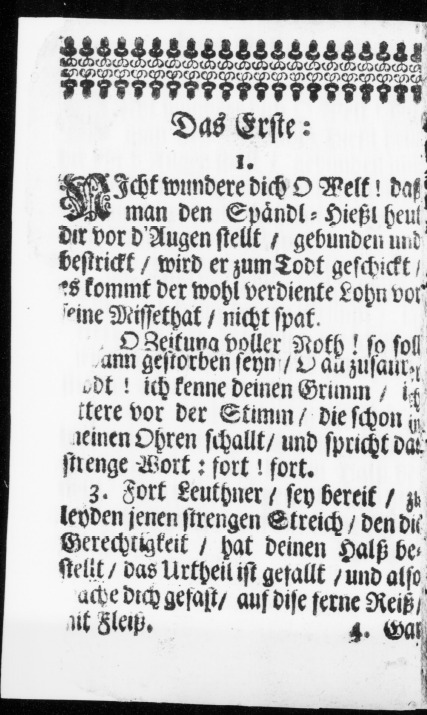 Das Erste:
1.
NIcht wundere dich O Welt! daß
man den Spändl-Hießl heut
dir vor d'Augen stellt / gebunden und
bestrickt / wird er zum Todt geschickt /
es kommt der wohl verdiente Lohn vor
seine Missethat / nicht spat.
O Zeitung voller Noth! so soll
dann gestorben seyn / O all zusaurer
Todt! ich kenne deinen Grimm / ich
zittere vor der Stimm / die schon in
meinen Ohren schallt / und spricht das
strenge Wort: fort! fort.
3. Fort Leuthner / sey bereit / zu
leyden jenen strengen Streich / den die
Gerechtigkeit / hat deinen Halß be-
stellt / das Urtheil ist gefallt / und also
mache dich gefast / auf dise ferne Reiß /
mit Fleiß.
4. Gar